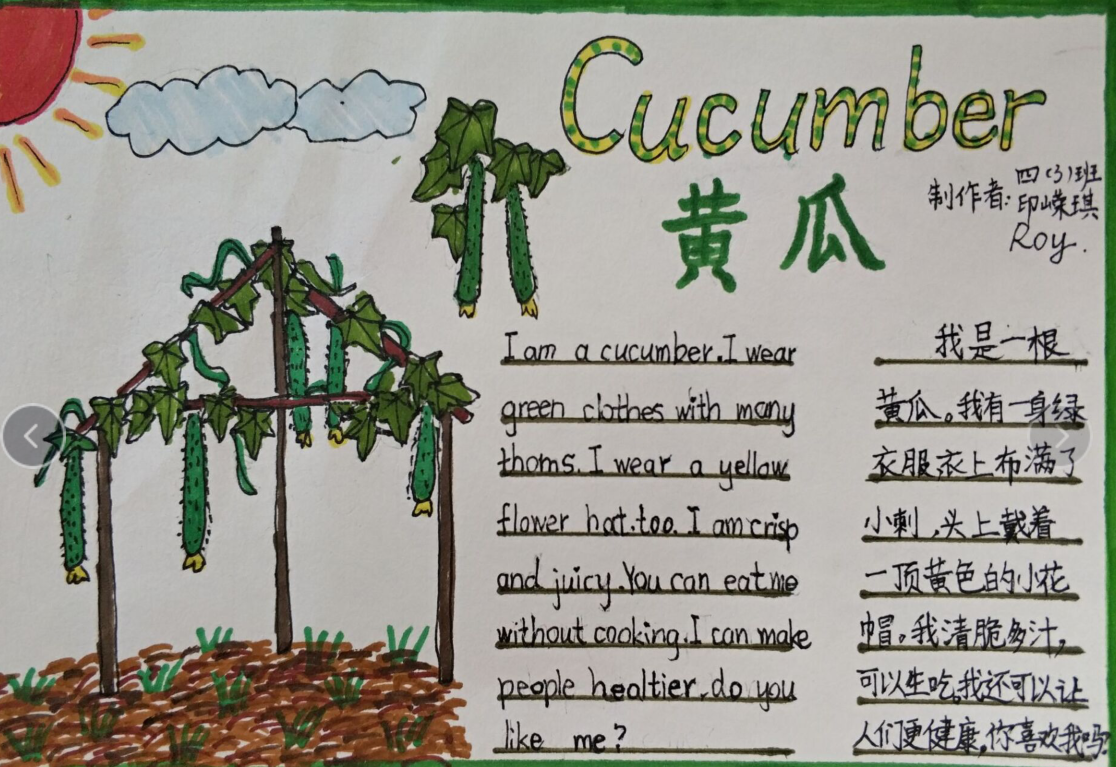 Cucumber
黄瓜
制作者:四(3)班
印嵘琪
Roy.
I am a cucumber.I wear
green clothes with many
thoms.I wear a yellow
flower hat.too.I am crisp
and juicy.You can eat me
without cooking.I can make
people healtier.do you
like me?
我是一根
黄瓜。我有一身绿
衣服衣上布满了
小刺,头上戴着
一顶黄色的小花
帽。我清脆多汁,
可以生吃,我还可以让
人们更健康,你喜欢我吗?